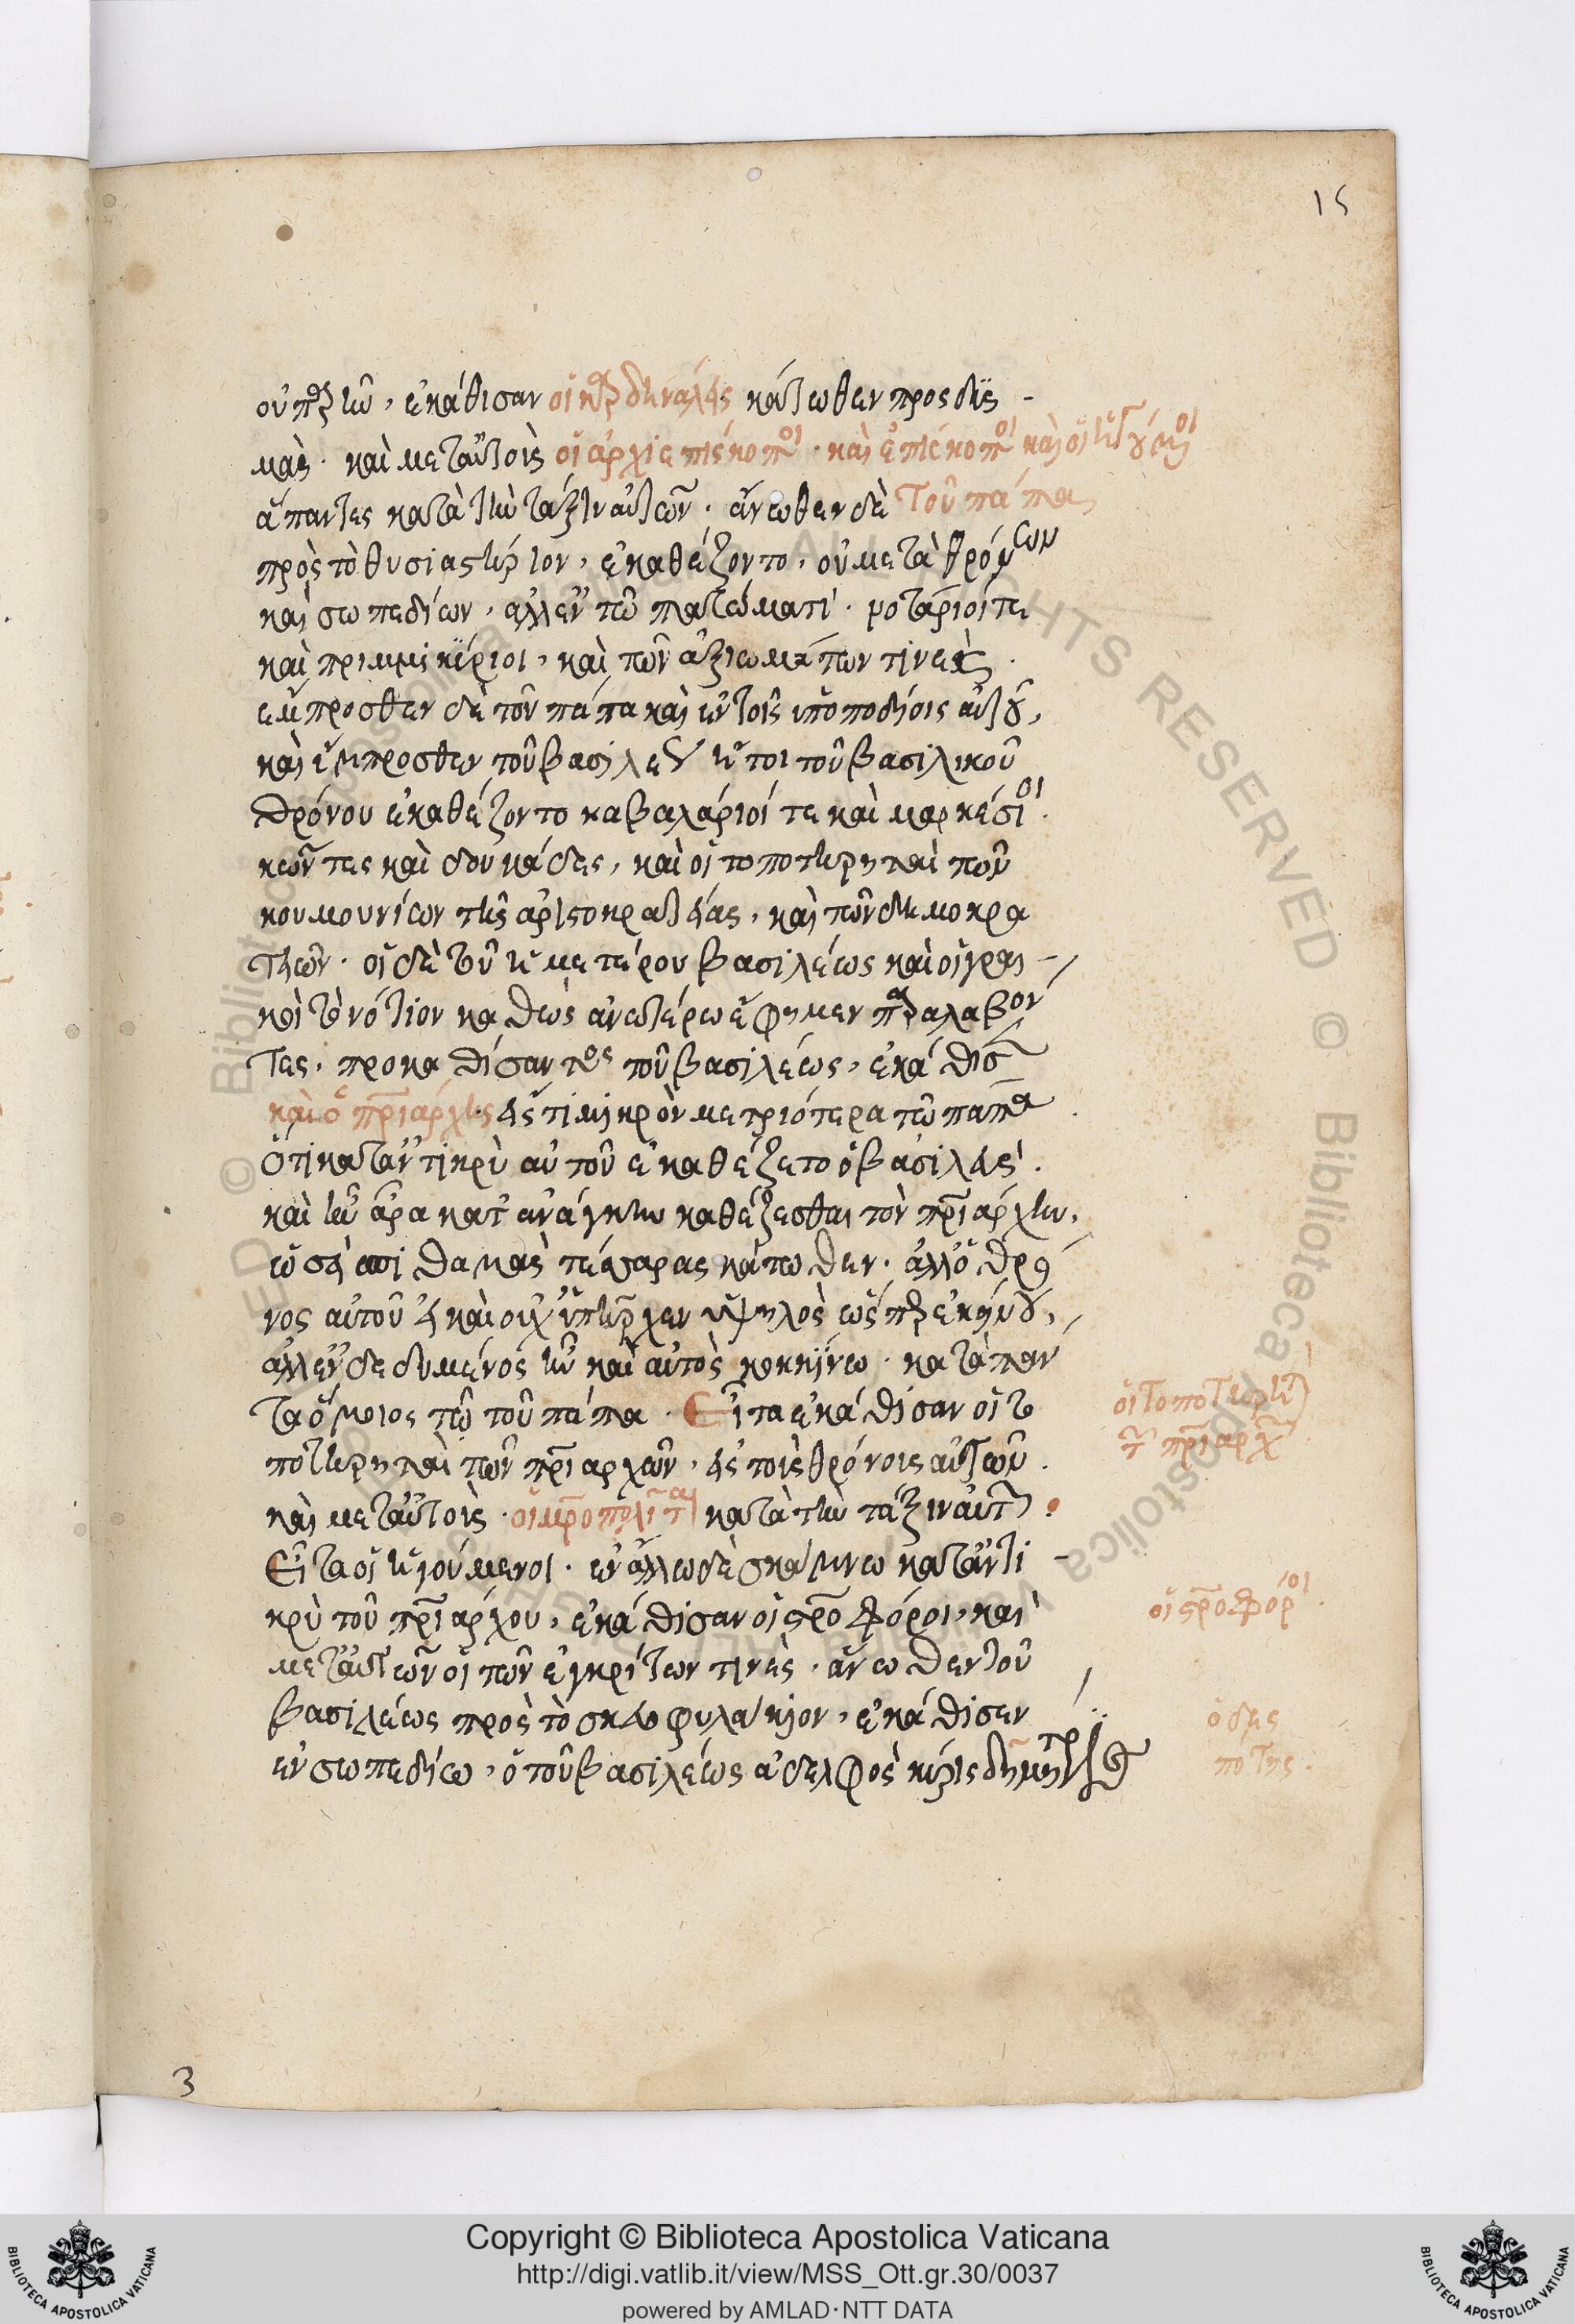 15
οὐ παρῆν, ἐκάθισαν οἱ καρδηνάλεις κάτωθεν προς δὺς -
μὰς · καὶ μετ' αὐτοὺς οἱ ἀρχιεπίσκοποι · καὶ ἐπίσκοποι καὶ οἱ ἡγούμενοι
ἅπαντες κατὰ τὴν τάξιν αὐτῶν · ἄνωθεν δὲ τοῦ πάπα
πρὸς τὸ θυσιαστήριον, ἐκαθέζοντο, οὐ μετὰ θρόνων
καὶ σωπεδίων, ἀλλ' ἐν τῶ πατώματι · νοτάριοί τε
καὶ πριμμικύριοι, καὶ τῶν ἀξιωμάτων τινες ·
ἔμπροσθεν δὲ τοῦ πάπα καὶ ἐν τοῖς ὑποποδίοις αὐτοῦ,
καὶ ἔμπροσθεν τοῦ βασιλέως ἤτοι τοῦ βασιλικοῦ
θρόνου ἐκαθέζοντο καβαλάριοί τε καὶ μαρκέσιοι ·
κῶντες καὶ δουκάδες, καὶ οἱ τοποτηρηταὶ τῶν
κουμουνίων τῆς ἀριστοκρατείας, καὶ τῶν δημοκρα
τιῶν · οἱ δὲ τοῦ ἡμετέρου βασιλέως καὶ οἱ γραι -
κοὶ τὸ νότιον καθὼς ἀνωτέρω ἔφημεν παραλαβόν
τες, προκαθίσαντος τοῦ βασιλέως, ἐκάθισε
καὶ ὁ πατριάρχης εἰς τι μικρὸν μετριότερα τῶ πάπα ·
ὅτι κατ' ἀντικρὺ αὐτοῦ ἐκαθέζετο ὁ βασιλεὺς ·
καὶ ἦν ἄρα κατ' ἀνάγκην καθέζεσθαι τὸν πατριάρχην,
ὡσεὶ σπιθαμὰς τέσσαρας κάτωθεν · ἀλλ' ὁ θρό
νος αὐτοῦ εἰ καὶ οὐχ' ὑπῆρχεν ὑψηλὸς ὡς παρ' ἐκείνου,
ἀλλ' ἐνδεδυμένος ἦν καὶ αὐτὸς κοκκίνω · κατὰ πάν
τα ὅμοιος τῶ τοῦ πάπα · Εἶτα ἐκάθισαν οἱ το
ποτηρηταὶ τῶν πατριαρχῶν, εἰς τοὺς θρόνοις αὐτῶν ·
καὶ μετ' αὐτοὺς · οἱ μητροπολῖται κατὰ τὴν τάξιν αὐτῶν :
Εἶτα οἱ ἡγούμενοι · ἐν ἄλλω δὲ σκάμνω κατ' ἀντι -
κρὺ τοῦ πατριάρχου, ἐκάθισαν οἱ σταυροφόροι, καὶ
μετ' αὐτῶν οἱ τῶν ἐγκρίτων τινὲς · ἄνωθεν τοῦ
βασιλέως πρὸς τὸ σκευοφυλάκιον, ἐκάθισεν
ἐν σωπεδίω, ὁ τοῦ βασιλέως ἀδελφὸς κύρις δημήτριος
οἱ τοποτηρηταὶ
τῶν πατριαρχῶν
οἱ σταυροφόροι ·
ὁ δες
πότης ·
3
Copyright © Biblioteca Apostolica Vaticana
http://digi.vatlib.it/view/MSS_Ott.gr.30/0037
powered by AMLAD·NTT DATA